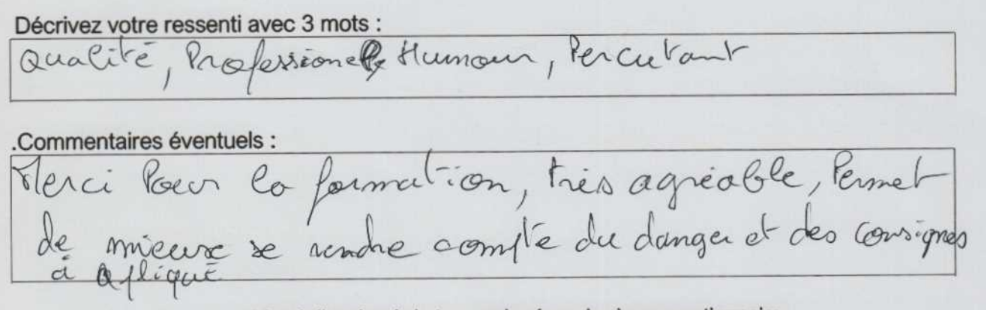 Décrivez votre ressenti avec 3 mots :
Qualité, Professionell, Humour, Percutant
.Commentaires éventuels :
Merci Pour la formation, très agréable, Permet
de mieux se rendre compte du danger et des consignes
à apliqué